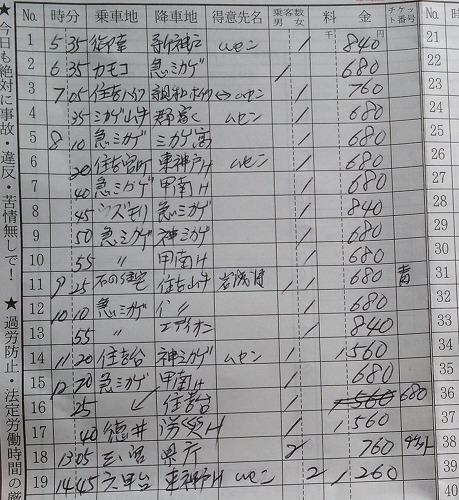 ★今日も絶対に事故・違反・苦情無しで！ ★過労防止・法定労働時間の厳
No. 時分 乗車地 降車地 得意先名 乗客数 男 女 料金 チケット番号 No.
千 円
1 5 35 新神戸 ムセン 1 840 21
2 6 35 カモコ 急ミカゲ 1 680 22
3 7 05 住吉 ムセン 1 760 23
4 35 ミカゲ山手 ムセン 1 680 24
5 8 10 急ミカゲ ミカゲ高 1 680 25
6 20 住吉宮町 東神戸H ムセン 1 680 26
7 40 急ミカゲ 甲南H 1 680 27
8 45 急ミカゲ 1 840 28
9 50 急ミカゲ 神ミカゲ 1 680 29
10 55 〃 甲南H 1 680 30
11 9 25 住宅 住吉山手 1 680 青 31
12 10 10 急ミカゲ 1 680 32
13 55 〃 エディオン 1 840 33
14 11 20 住吉台 神ミカゲ ムセン 1 1560 34
15 12 20 急ミカゲ 甲南H 1 680 35
16 25 住吉台 1 1560 680 36
17 40 徳井 H 1 1560 37
18 13 05 三宮 県庁 2 760 チケット 38
19 14 45 六甲台 東神戸H ムセン 2 1260 39
40